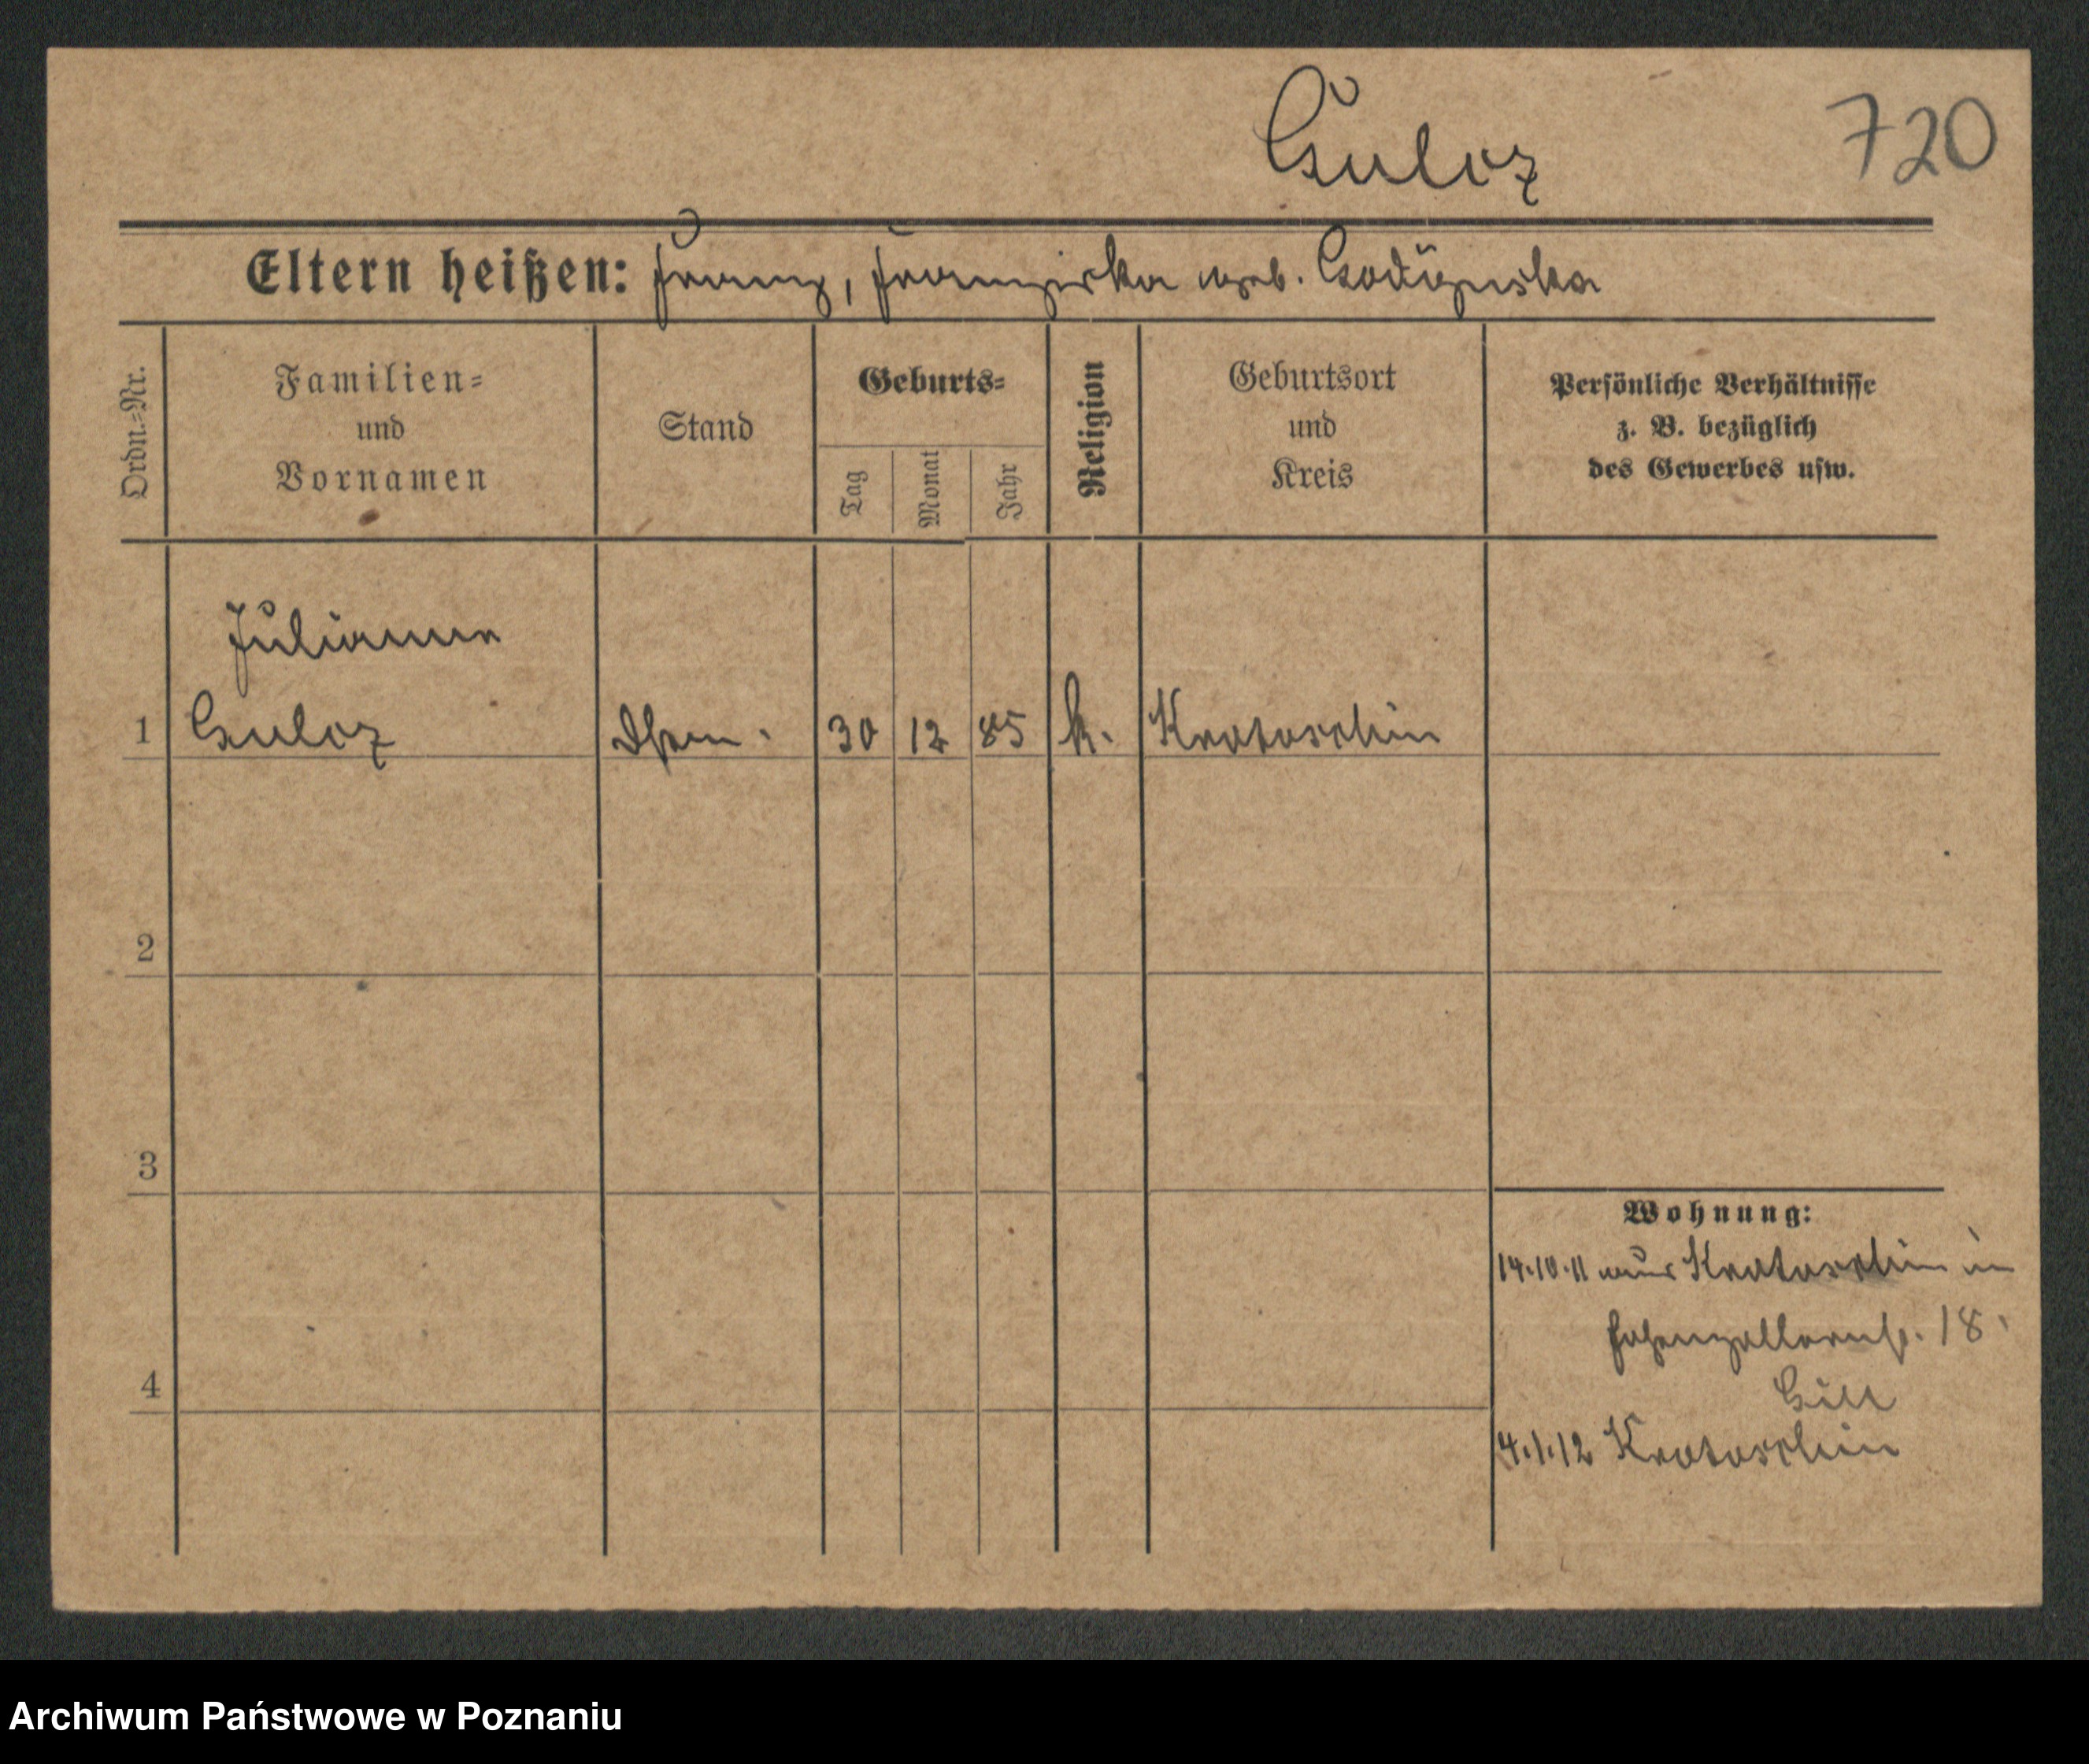 Gulcz
720
Eltern heißen: Franz, Franziska geb.
Ordn.=Nr.
Familien=
und
Vornamen
Stand
Geburts=
Tag
Monat
Jahr
Religion
Geburtsort
und
Kreis
Persönliche Verhältnisse
z. B. bezüglich
des Gewerbes usw.
Julianna
1 Gulcz 30 12 85 k. Krotoschin
2
3
Wohnung:
14.10.11 aus Krotoschin in
Hohenzollernst. 18.
4
4.1.12 Krotoschin
Archiwum Państwowe w Poznaniu